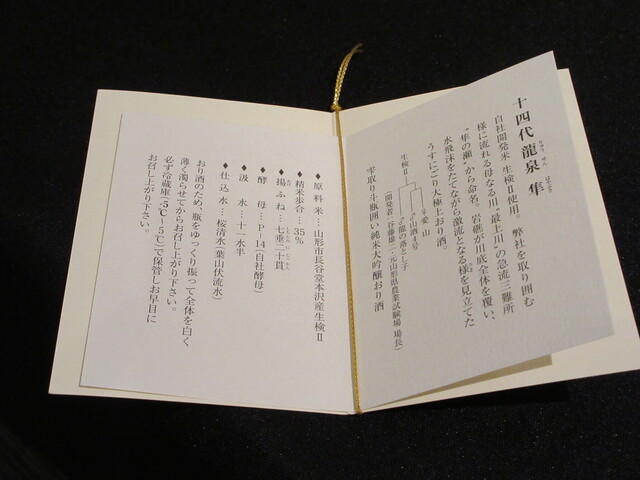 十四代 龍泉 隼
りゅう せん はやぶさ
自社開発米 生検Ⅱ使用。 弊社を取り囲む
様に流れる母なる川"最上川"の急流三難所
"隼の瀬"から命名。岩礁が川底全体を覆い、
水飛沫をたてながら激流となる様を見立てた
うすにごり大極上おり酒。
生検Ⅱ
♀愛山
♂山酒4号
♂龍の落とし子
(開発者・谷藤雄二・元山形県農業試験場 場長)
雫取り斗瓶囲い純米大吟醸おり酒
♦原料米…山形市長谷堂本沢産生検Ⅱ
♦精米歩合…35%
♦揚ふね…七垂二十貫
♦酵母…P-14(自社酵母)
♦汲水…十一水半
♦仕込水…桜清水(葉山伏流水)
おり酒のため、瓶をゆっくり振って全体を白く
薄く濁らせてからお召し上がり下さい。
必ず冷蔵庫(-5℃〜5℃)で保管しお早目に
お召し上がり下さい。